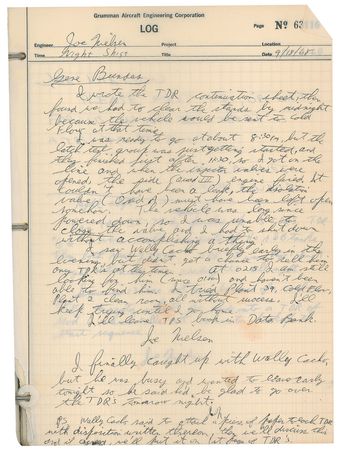 Grumman Aircraft Engineering Corporation
LOG
Page Nº 63
Engineer Joe Nielsen Project Location
Time Night Shift Title Date 9/18/68
Gene Bundas
I wrote the TDR continuation sheet, then
found we had to clear the stands by midnight
because the vehicle would be sent to Cold
Flow at that time.
I was ready to go at about 8:30 pm, but the
test group was just getting started, and
they finished just after 11:30, so I got on the
line and when the injector valves were
opened, the side engine fired. It
couldn't have been a leak, the isolation
valve must have been left open
The vehicle was long since
powered down, so I was unable to
close the valve, and I had to shut down
without accomplishing a thing.
I saw Wally Cocks early in the
evening but didn't get a chance to sell him
any TDR's at that time. At 0215 I am still
looking for him (since 0100) and haven't been
able to find him. I tried Plant 39, cold flow,
Plant 2 clean room, all without success. I'll
keep trying until I go home.
I'll leave TPS book in Data Bank.
Joe Nielsen
I finally caught up with Wally Cocks,
but he was busy and wanted to leave early
tonight so he said he'd be glad to go over
the TDR's tomorrow night.
PS Wally Cocks said to attach a piece of paper to each TDR
with disposition written thereon, then we'll discuss this
and if we'll put it on last page of TDR's